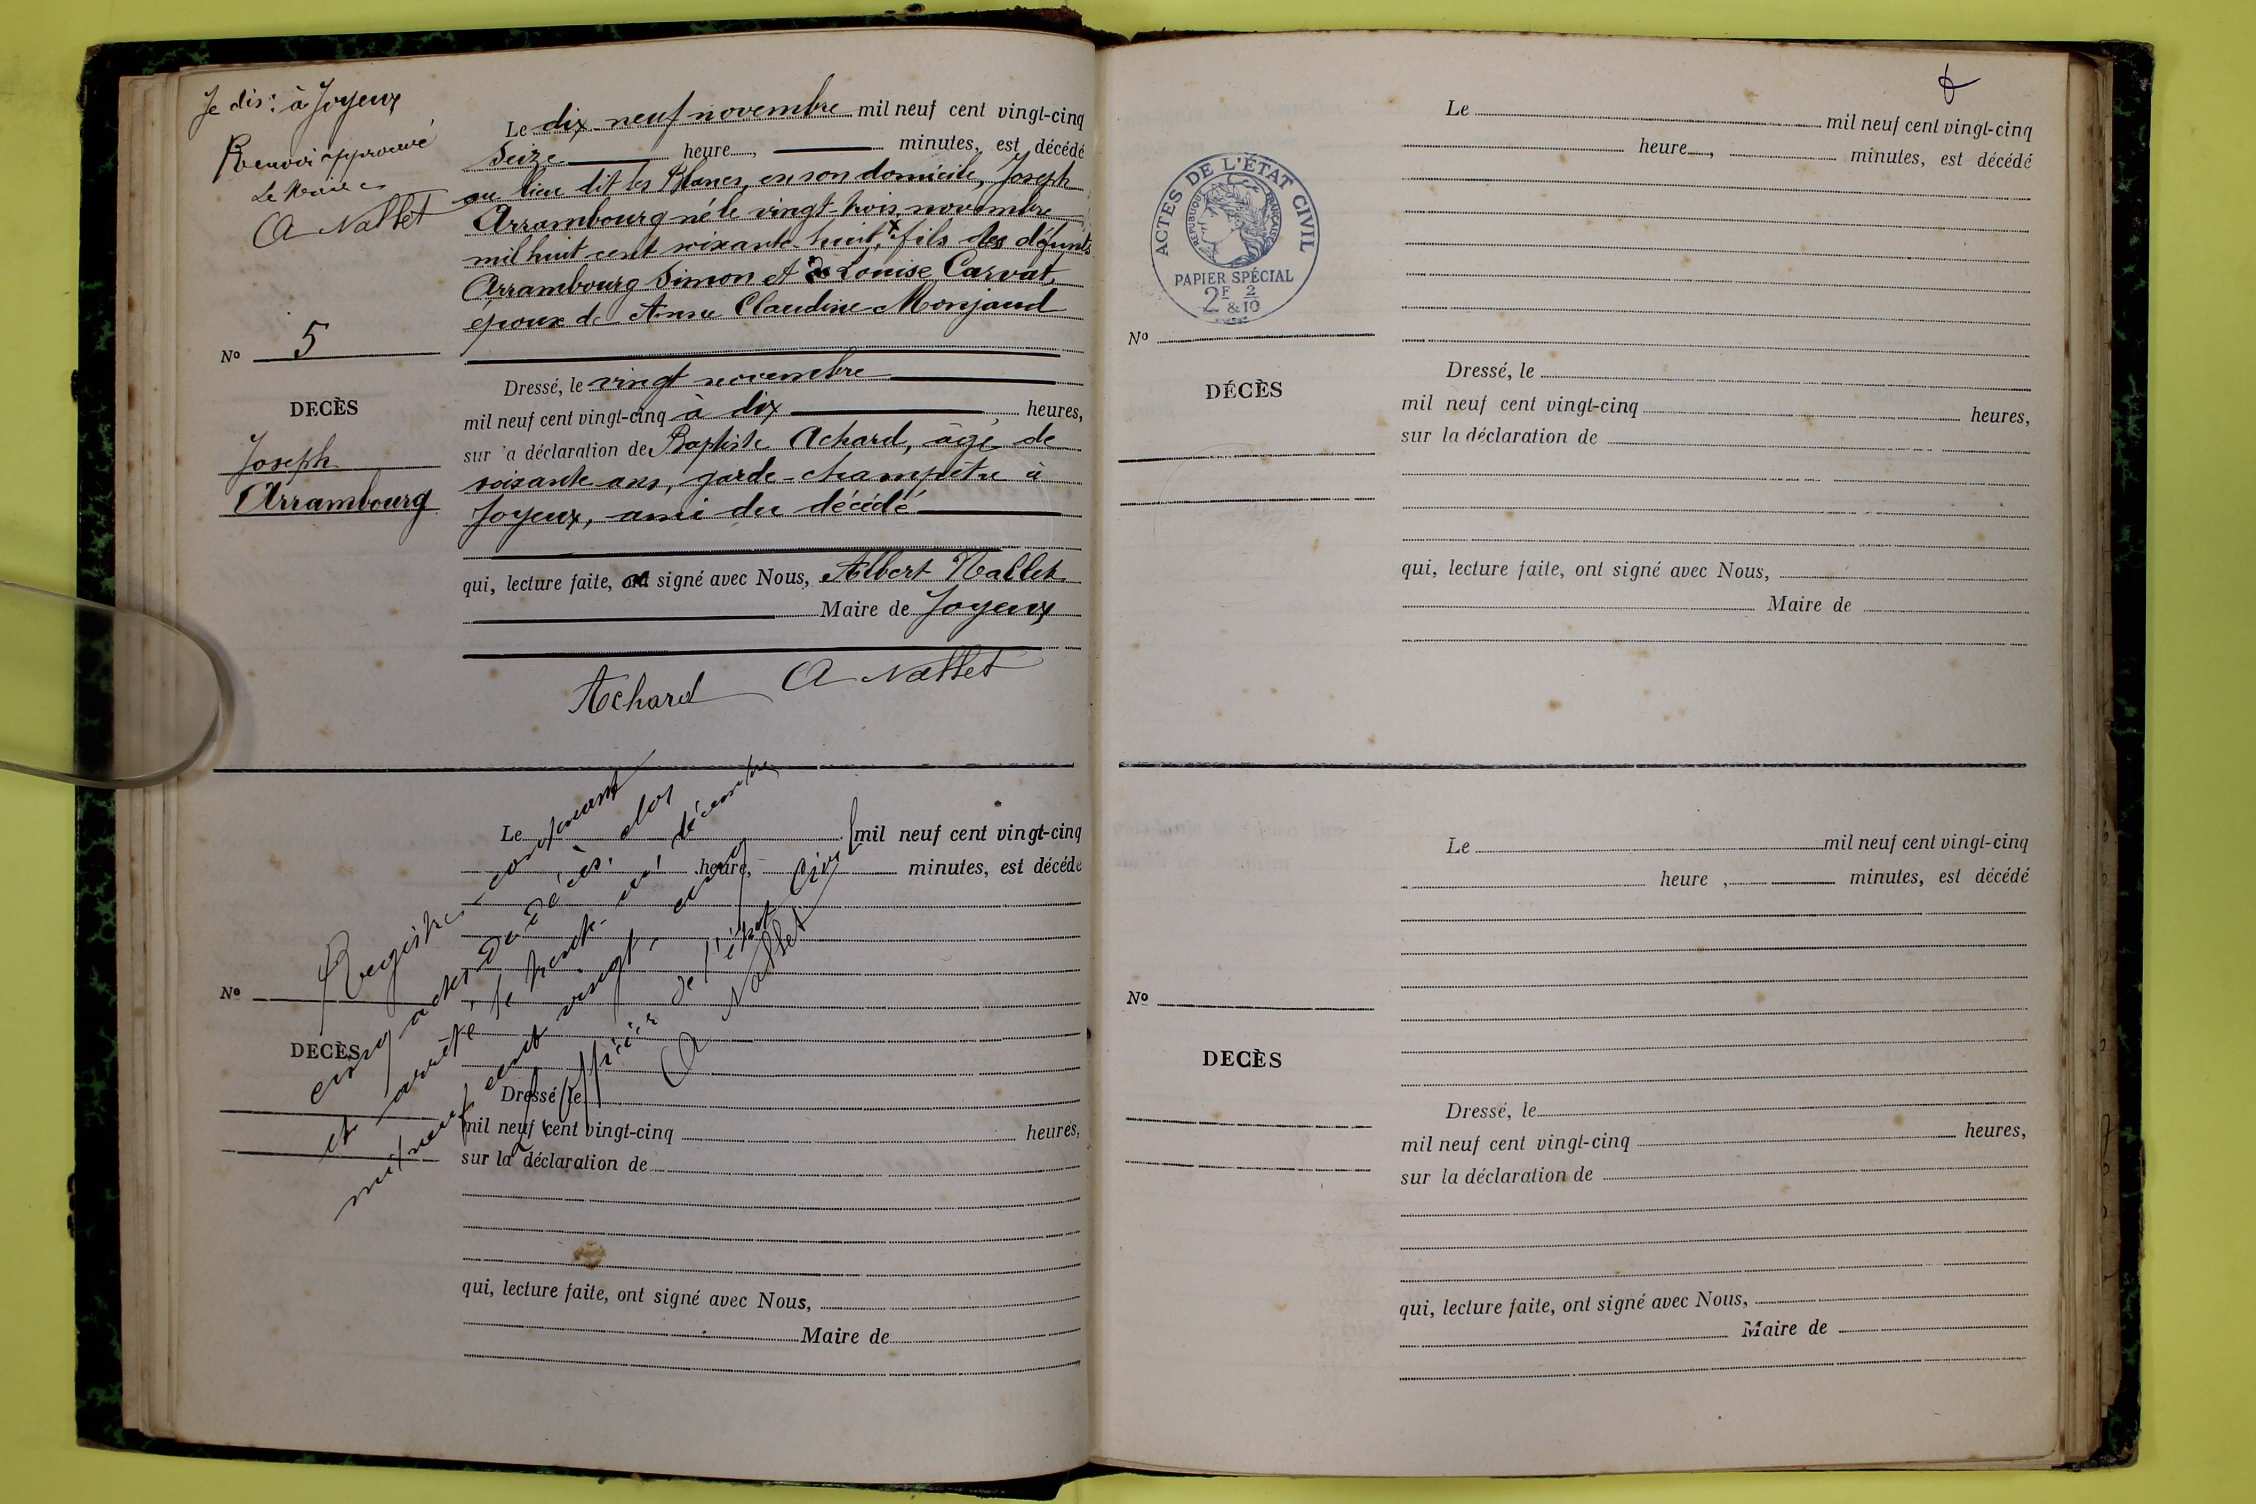 Je dis : à Joyeux
Renvoi approuvé
Le Maire
A Nallet
Le dix neuf novembre mil neuf cent vingt-cinq
Seize heure, minutes, est décédé
au lieu dit les Blancs, en son domicile, Joseph
Arrambourg né le vingt-trois novembre
mil huit cent soixante huit, x fils des défunts
Arrambourg Simon et de Louise Carvat,
époux de Anne Claudine Monjaud
No 5
DECÈS
Joseph
Arrambourg
Dressé, le vingt novembre
mil neuf cent vingt-cinq à dix heures,
sur 'a déclaration de Baptiste Achard, âgé de
soixante ans, garde-champêtre à
Joyeux, ami du décédé
qui, lecture faite, signé avec Nous, Albert Nallet
Maire de Joyeux
Achard A Nallet
Le mil neuf cent vingt-cinq
heure, minutes, est décédé
No
DECÈS
Dressé, le
mil neuf cent vingt-cinq heures,
sur la déclaration de
qui, lecture faite, ont signé avec Nous,
Maire de
Registre contenant
cinq actes de décès, clos
et arrêté, le trente-un décembre
mil neuf cent vingt-cinq
L'officier de l'état civil
A Nallet
ACTES DE L'ÉTAT CIVIL
RÉPUBLIQUE FRANÇAISE
PAPIER SPÉCIAL
2F & 2/10
Le mil neuf cent vingt-cinq
heure, minutes, est décédé
No
DÉCÈS
Dressé, le
mil neuf cent vingt-cinq heures,
sur la déclaration de
qui, lecture faite, ont signé avec Nous,
Maire de
Le mil neuf cent vingt-cinq
heure , minutes, est décédé
No
DECÈS
Dressé, le
mil neuf cent vingt-cinq heures,
sur la déclaration de
qui, lecture faite, ont signé avec Nous,
Maire de